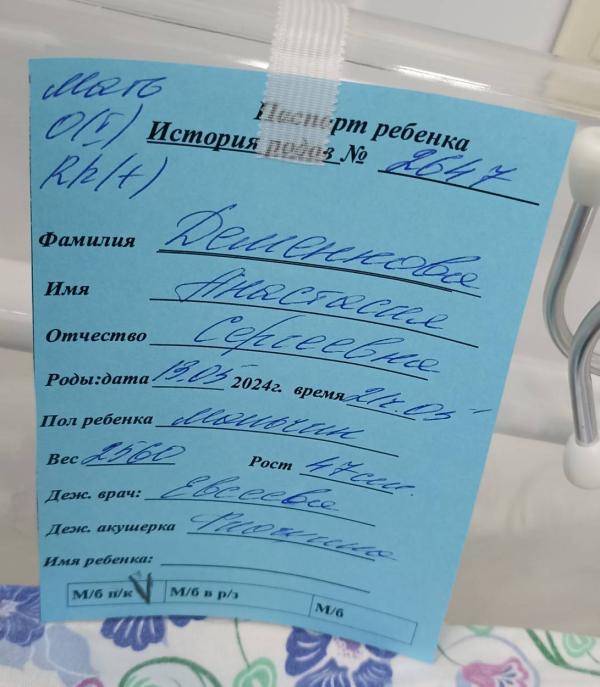 Мать
O(I)
Rh(+)
Паспорт ребенка
История родов № 2647
Фамилия Деменкова
Имя Анастасия
Отчество Сергеевна
Роды:дата 13.05 2024г. время 21ч.05'
Пол ребенка мальчик
Вес 2560 Рост 47см.
Деж. врач: Евсеева
Деж. акушерка
Имя ребенка:
М/б п/к V М/б в р/з М/б